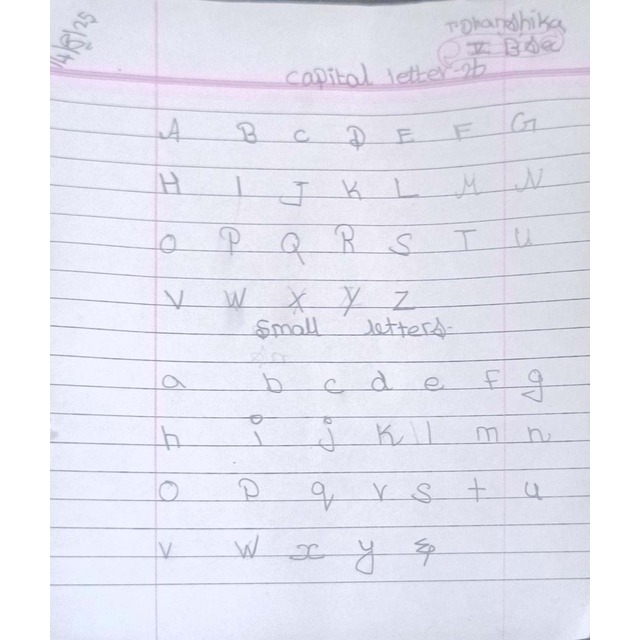 T. Dhanshika
V Bsc
Capital letter-26
A B C D E F G
H I J K L M N
O P Q R S T U
V W X Y Z
Small letters-
a b c d e f g
h i j k l m n
o p q r s t u
v w x y z